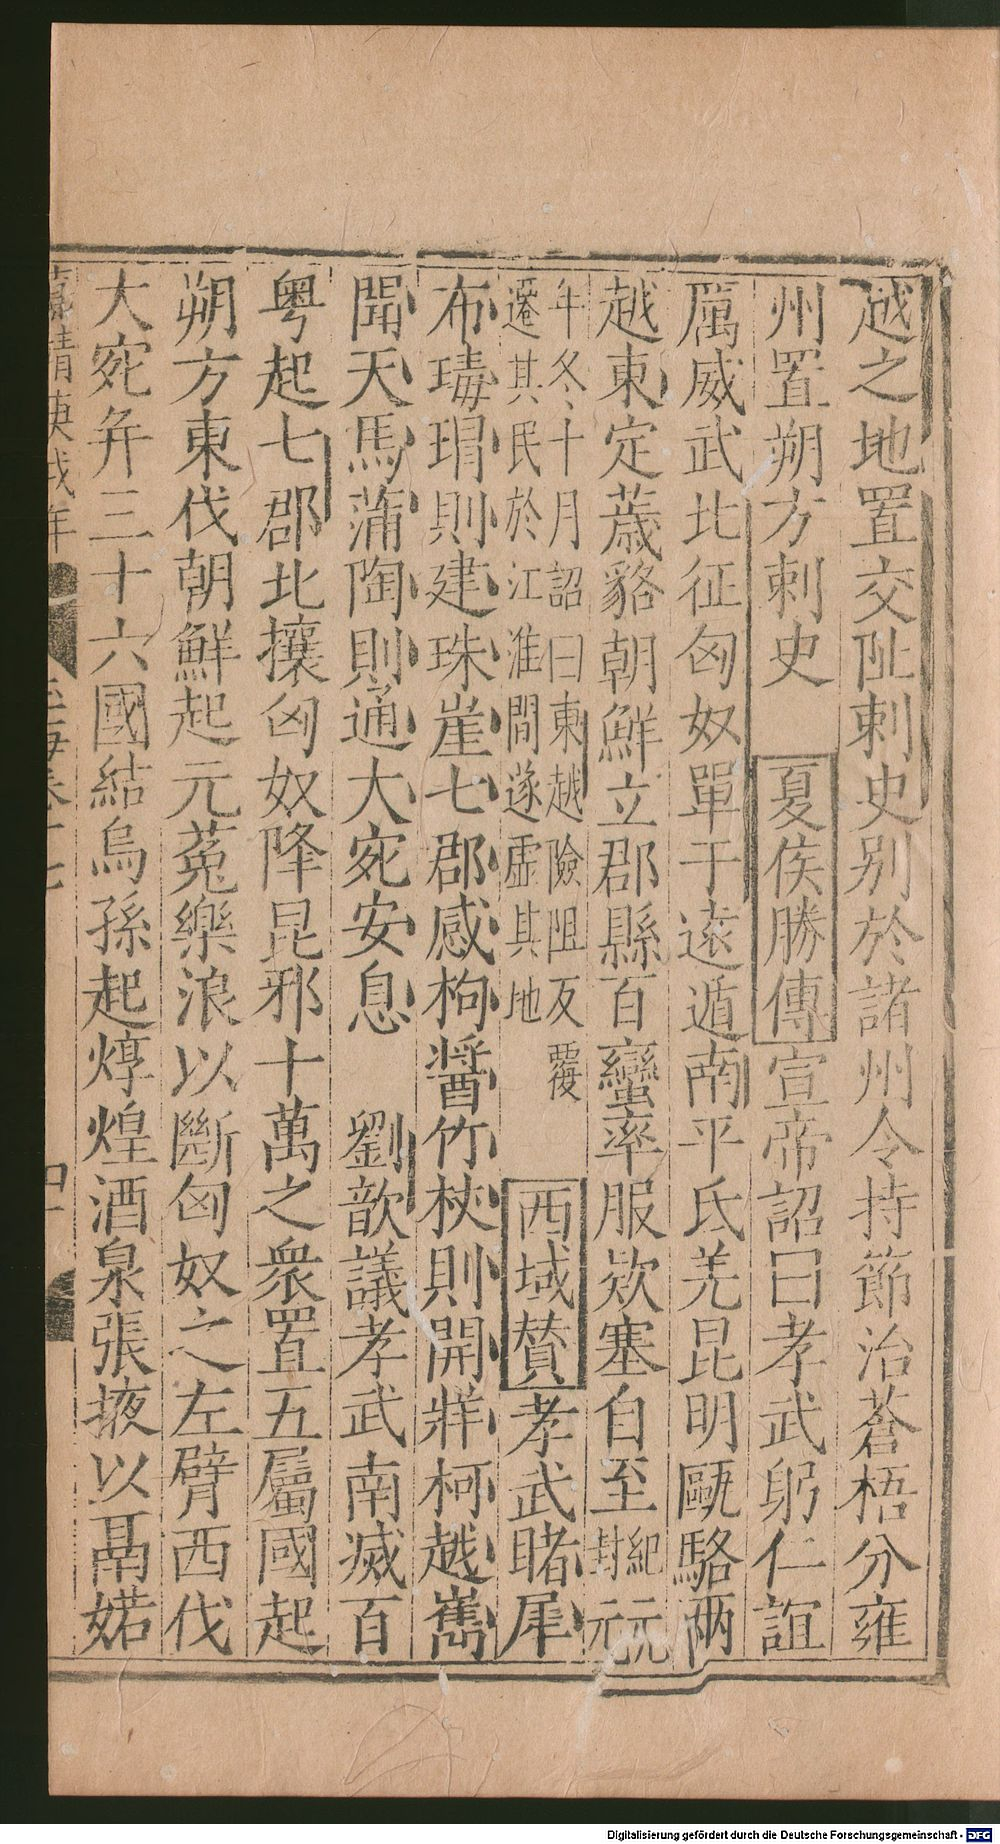 越之地置交阯刺史别於諸州令持節治蒼梧分雍
州置朔方刺史 夏侯勝傳宣帝詔曰孝武躬仁誼
厲威武北征匈奴單于遠遁南平氐羌昆明甌駱兩
越東定薉貉朝鮮立郡縣百蠻率服欵塞自至紀元封元
年冬十月詔曰東越險阻反覆
遷其民於江淮間遂虚其地
西域贊孝武睹犀
布瑇瑁則建珠崖七郡感枸醬竹杖則開牂柯越嶲
聞天馬蒲陶則通大宛安息 劉歆議孝武南滅百
粤起七郡北攘匈奴降昆邪十萬之衆置五屬國起
朔方東伐朝鮮起元菟樂浪以斷匈奴之左臂西伐
大宛并三十六國結烏孫起焞煌酒泉張掖以鬲婼
年
Digitalisierung gefördert durch die Deutsche Forschungsgemeinschaft - DFG